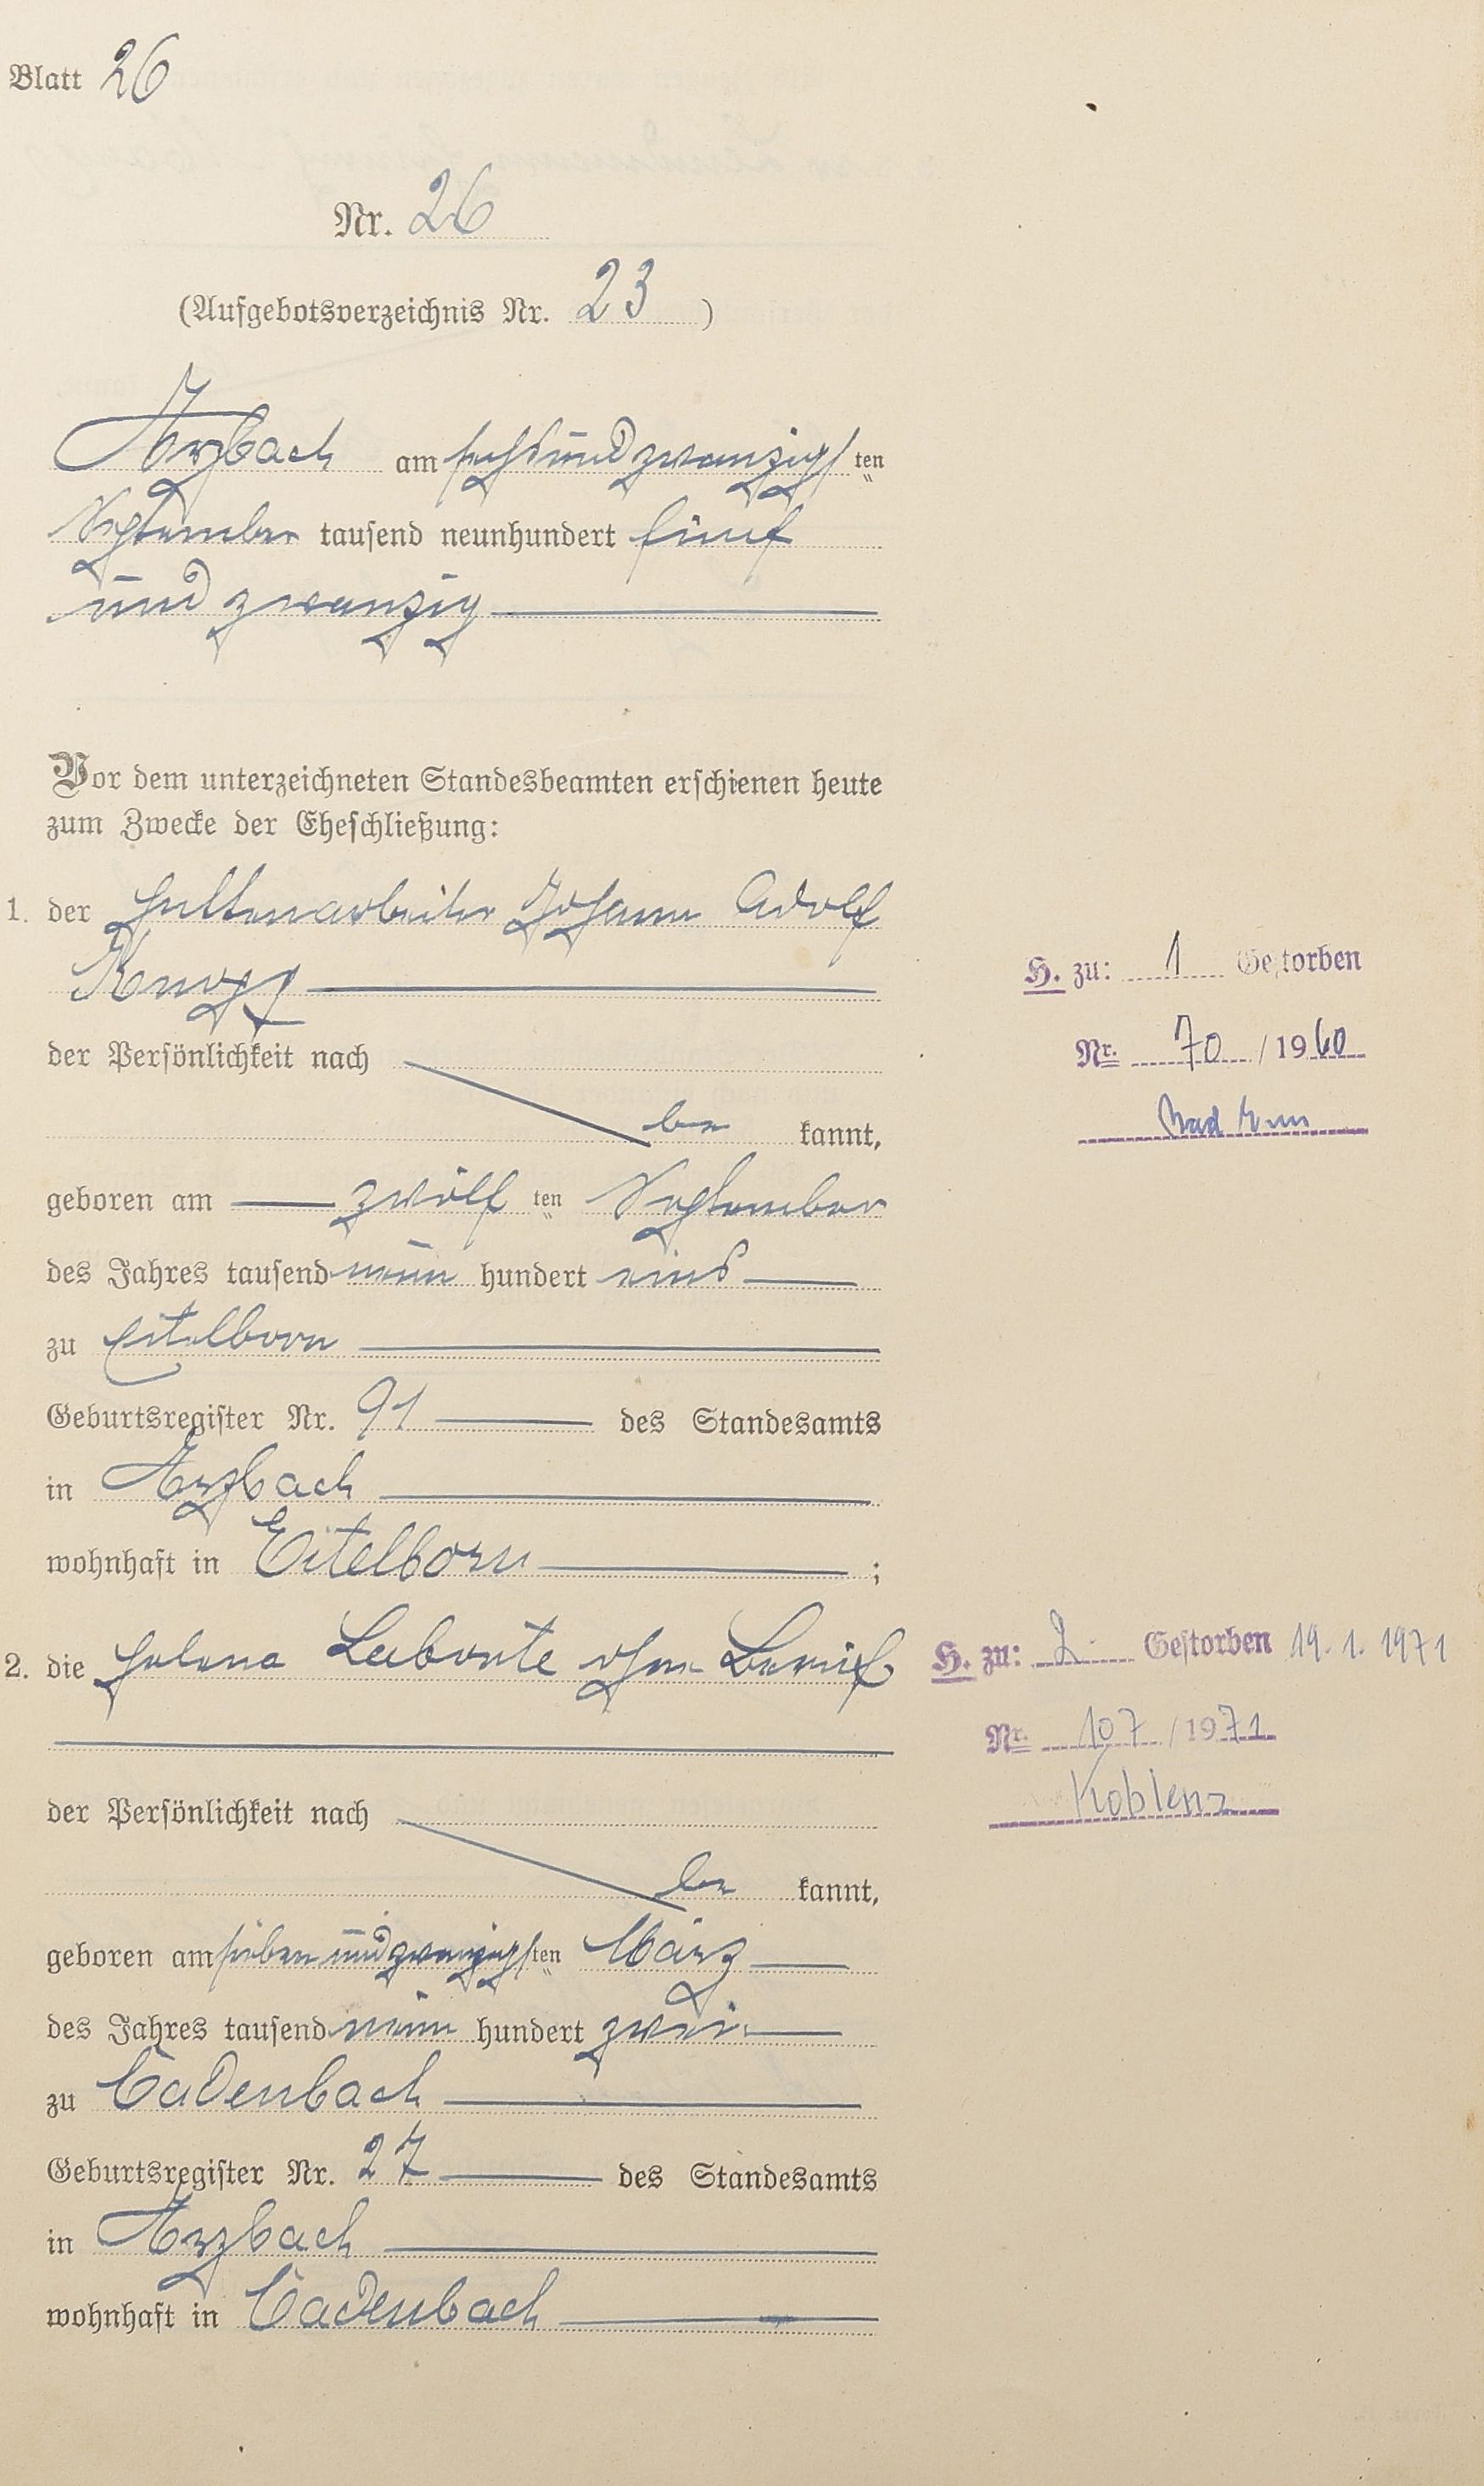 Blatt 26
Nr. 26
(Aufgebotsverzeichnis Nr. 23)
Arzbach am sechsundzwanzigsten
September tausend neunhundert fünf
und zwanzig
Vor dem unterzeichneten Standesbeamten erschienen heute
zum Zwecke der Eheschließung:
1. der Hüttenarbeiter Johann Adolf
Knopp
der Persönlichkeit nach
be kannt,
geboren am zwölf ten September
des Jahres tausend neun hundert eins
zu Eitelborn
Geburtsregister Nr. 91 des Standesamts
in Arzbach
wohnhaft in Eitelborn ;
H. zu: 1 Gestorben
Nr. 70 / 1960
Bad Ems
2. die Helena Labonte ohne Beruf
der Persönlichkeit nach
be kannt,
geboren am sieben und zwanzigsten März
des Jahres tausend neun hundert zwei
zu Cadenbach
Geburtsregister Nr. 27 des Standesamts
in Arzbach
wohnhaft in Cadenbach
H. zu: 2 Gestorben 19. 1. 1971
Nr. 107 / 1971
Koblenz